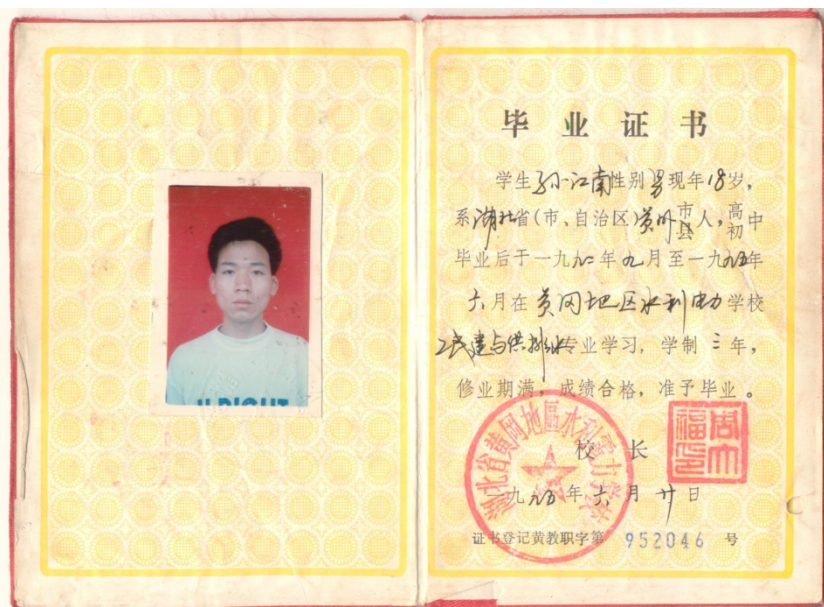 U RIGHT
毕业证书
学生孙江南性别男现年18岁，
系湖北省(市、自治区)黄州市县人，高初中
毕业后于一九九二年九月至一九九五年
六月在黄冈地区水利电力学校
工民建与供排水专业学习，学制三年，
修业期满，成绩合格，准予毕业。
校长
周天福印
湖北省黄冈地區水利電力学校
一九九五年六月廿日
证书登记黄教职字第 952046 号